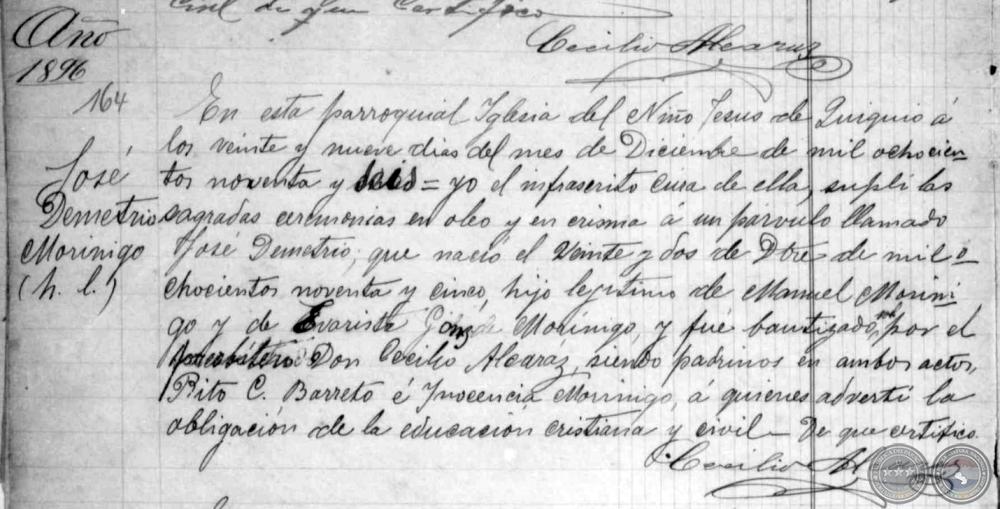 Civil de que Certifico
Cecilio Alcaraz
Año
1896
164
José
Demetrio
Morinigo
(h. l.)
En esta parroquial Iglesia del Niño Jesus de Quiquió á
los veinte y nueve dias del mes de Diciembre de mil ochocien-
tos noventa y seis = yo el infrascrito cura de ella, supli las
sagradas ceremonias en oleo y en crisma á un párvulo llamado
José Demetrio, que nació el veinte y dos de Dbre de mil o-
chocientos noventa y cinco, hijo legitimo de Manuel Morini-
go y de Evarista Morinigo, y fué bautizado, por el
presbítero Don Cecilio Alcaráz, siendo padrinos en ambos actos,
Rito C. Barreto é Inocencia Morinigo, á quienes advertí la
obligación de la educación cristiana y civil – De que certifico.
Cecilio Al